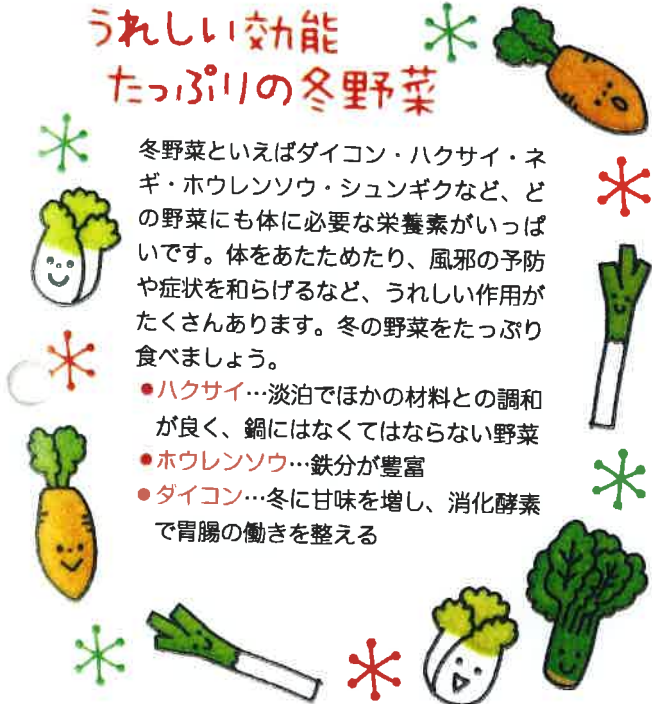 うれしい効能
たっぷりの冬野菜
冬野菜といえばダイコン・ハクサイ・ネ
ギ・ホウレンソウ・シュンギクなど、ど
の野菜にも体に必要な栄養素がいっぱ
いです。体をあたためたり、風邪の予防
や症状を和らげるなど、うれしい作用が
たくさんあります。冬の野菜をたっぷり
食べましょう。
●ハクサイ…淡泊でほかの材料との調和
が良く、鍋にはなくてはならない野菜
●ホウレンソウ…鉄分が豊富
●ダイコン…冬に甘味を増し、消化酵素
で胃腸の働きを整える